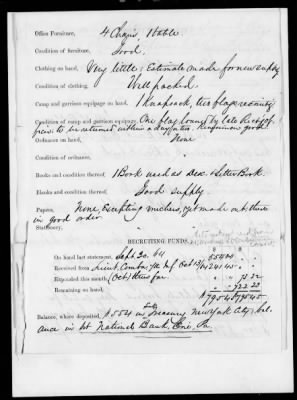 Office Furniture, 4 Chairs, 1 table.
Condition of furniture, Good.
Clothing on hand, Very little; Estimate made for new supply
Condition of clothing, Well packed.
Camp and garrison equipage on hand, 1 Knapsack, two flags
Condition of camp and garrison equipage, One flag loaned by late
to be returned within a day or two. good
Ordnance on hand, None
Condition of ordnance,
Books and condition thereof, 1 Book used as Desc. & Letter Book.
Blanks and condition thereof, Good supply
Papers, None, Excepting vouchers, yet made out there
in good order
Stationery,
RECRUITING FUNDS.
On hand last statement, Sept. 30. 64
Received from Lieut.
Expended this month, (Oct) thus far
Remaining on hand,
Balance, where deposited, in Treasury New York City, bal-
ance in 1st National Bank, Erie, Pa.